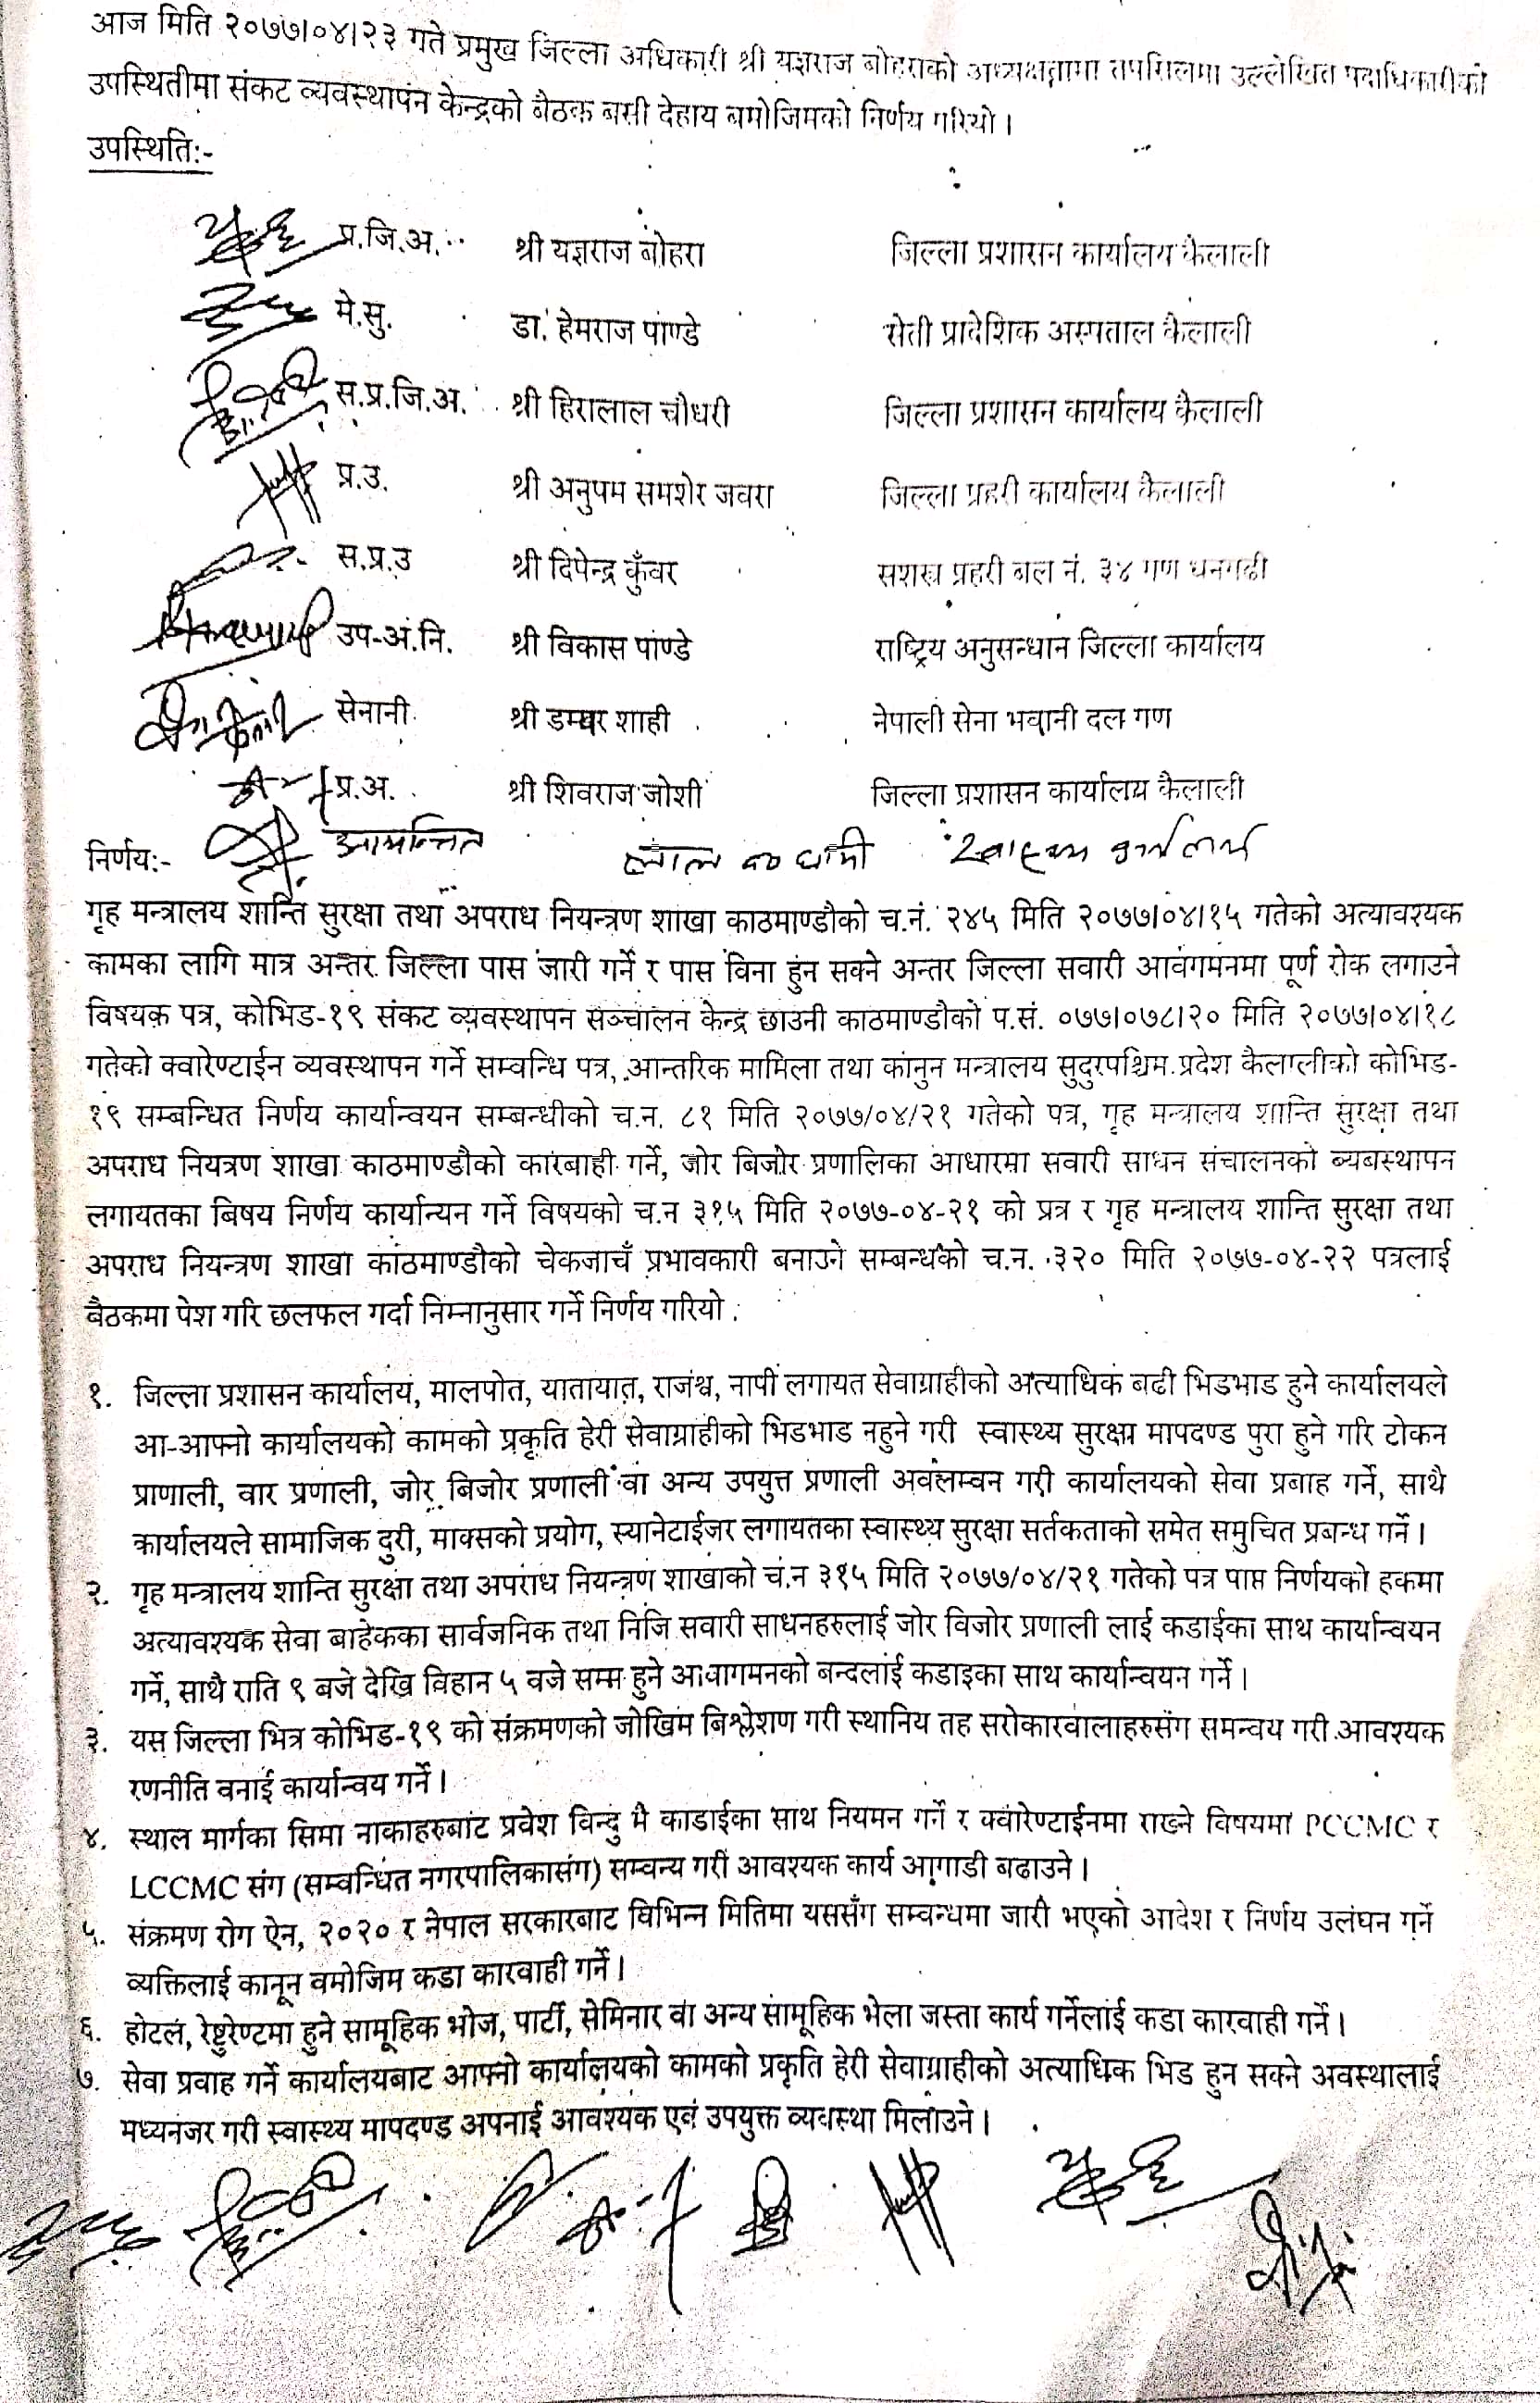 आज मिति २०७७।०४।२३ गते प्रमुख जिल्ला अधिकारी श्री यज्ञराज बोहराको अध्यक्षतामा तपसिलमा उल्लेखित पदाधिकारीको
उपस्थितीमा संकट व्यवस्थापन केन्द्रको बैठक बसी देहाय बमोजिमको निर्णय गरियो।
उपस्थिति:-
प्र.जि.अ. श्री यज्ञराज बोहरा जिल्ला प्रशासन कार्यालय कैलाली
मे.सु. डा. हेमराज पाण्डे सेती प्रादेशिक अस्पताल कैलाली
स.प्र.जि.अ. श्री हिरालाल चौधरी जिल्ला प्रशासन कार्यालय कैलाली
प्र.उ. श्री अनुपम समशेर जवरा जिल्ला प्रहरी कार्यालय कैलाली
स.प्र.उ श्री दिपेन्द्र कुँवर सशस्त्र प्रहरी बल नं. ३४ गण धनगढी
उप-अं.नि. श्री विकास पाण्डे राष्ट्रिय अनुसन्धान जिल्ला कार्यालय
सेनानी श्री डम्बर शाही नेपाली सेना भवानी दल गण
प्र.अ. श्री शिवराज जोशी जिल्ला प्रशासन कार्यालय कैलाली
आमन्त्रित लाल ब धामी स्वास्थ्य कार्यालय
निर्णय:-
गृह मन्त्रालय शान्ति सुरक्षा तथा अपराध नियन्त्रण शाखा काठमाण्डौको च.नं. २४५ मिति २०७७।०४।१५ गतेको अत्यावश्यक
कामका लागि मात्र अन्तर जिल्ला पास जारी गर्ने र पास विना हुन सक्ने अन्तर जिल्ला सवारी आवगमनमा पूर्ण रोक लगाउने
विषयक पत्र, कोभिड-१९ संकट व्यवस्थापन सञ्चालन केन्द्र छाउनी काठमाण्डौको प.सं. ०७७।०७८।२० मिति २०७७।०४।१८
गतेको क्वारेण्टाईन व्यवस्थापन गर्ने सम्वन्धि पत्र, आन्तरिक मामिला तथा कानुन मन्त्रालय सुदुरपश्चिम प्रदेश कैलालीको कोभिड-
१९ सम्बन्धित निर्णय कार्यान्वयन सम्बन्धीको च.न. ८१ मिति २०७७/०४/२१ गतेको पत्र, गृह मन्त्रालय शान्ति सुरक्षा तथा
अपराध नियत्रण शाखा काठमाण्डौको कारबाही गर्ने, जोर बिजोर प्रणालिका आधारमा सवारी साधन संचालनको ब्यबस्थापन
लगायतका बिषय निर्णय कार्यान्यन गर्ने विषयको च.न ३१५ मिति २०७७-०४-२१ को प्रत्र र गृह मन्त्रालय शान्ति सुरक्षा तथा
अपराध नियन्त्रण शाखा काठमाण्डौको चेकजाचँ प्रभावकारी बनाउने सम्बन्धको च.न. ३२० मिति २०७७-०४-२२ पत्रलाई
बैठकमा पेश गरि छलफल गर्दा निम्नानुसार गर्ने निर्णय गरियो .
१. जिल्ला प्रशासन कार्यालय, मालपोत, यातायात, राजश्व, नापी लगायत सेवाग्राहीको अत्याधिक बढी भिडभाड हुने कार्यालयले
आ-आफ्नो कार्यालयको कामको प्रकृति हेरी सेवाग्राहीको भिडभाड नहुने गरी स्वास्थ्य सुरक्षा मापदण्ड पुरा हुने गरि टोकन
प्राणाली, वार प्रणाली, जोर बिजोर प्रणाली वा अन्य उपयुत्त प्रणाली अवलम्वन गरी कार्यालयको सेवा प्रबाह गर्ने, साथै
कार्यालयले सामाजिक दुरी, माक्सको प्रयोग, स्यानेटाईजर लगायतका स्वास्थ्य सुरक्षा सर्तकताको समेत समुचित प्रबन्ध गर्ने।
२. गृह मन्त्रालय शान्ति सुरक्षा तथा अपराध नियन्त्रण शाखाको च.न ३१५ मिति २०७७/०४/२१ गतेको पत्र पाप्त निर्णयको हकमा
अत्यावश्यक सेवा बाहेकका सार्वजनिक तथा निजि सवारी साधनहरुलाई जोर विजोर प्रणाली लाई कडाईका साथ कार्यान्वयन
गर्ने, साथै राति ९ बजे देखि विहान ५ वजे सम्म हुने आवागमनको बन्दलाई कडाइका साथ कार्यान्वयन गर्ने।
३. यस जिल्ला भित्र कोभिड-१९ को संक्रमणको जोखिम बिश्लेशण गरी स्थानिय तह सरोकारवालाहरुसंग समन्वय गरी आवश्यक
रणनीति वनाई कार्यान्वय गर्ने।
४. स्थाल मार्गका सिमा नाकाहरुबाट प्रवेश विन्दु मै काडाईका साथ नियमन गर्ने र क्वारेण्टाईनमा राख्ने विषयमा PCCMC र
LCCMC संग (सम्वन्धित नगरपालिकासंग) सम्वन्य गरी आवश्यक कार्य आगाडी बढाउने।
५. संक्रमण रोग ऐन, २०२० र नेपाल सरकारबाट विभिन्न मितिमा यससँग सम्वन्धमा जारी भएको आदेश र निर्णय उलंघन गर्ने
व्यक्तिलाई कानून वमोजिम कडा कारवाही गर्ने।
६. होटल, रेष्टुरेण्टमा हुने सामूहिक भोज, पार्टी, सेमिनार वा अन्य सामूहिक भेला जस्ता कार्य गर्नेलाई कडा कारवाही गर्ने।
७. सेवा प्रवाह गर्ने कार्यालयबाट आफ्नो कार्यालयको कामको प्रकृति हेरी सेवाग्राहीको अत्याधिक भिड हुन सक्ने अवस्थालाई
मध्यनजर गरी स्वास्थ्य मापदण्ड अपनाई आवश्यक एवं उपयुक्त व्यवस्था मिलाउने।